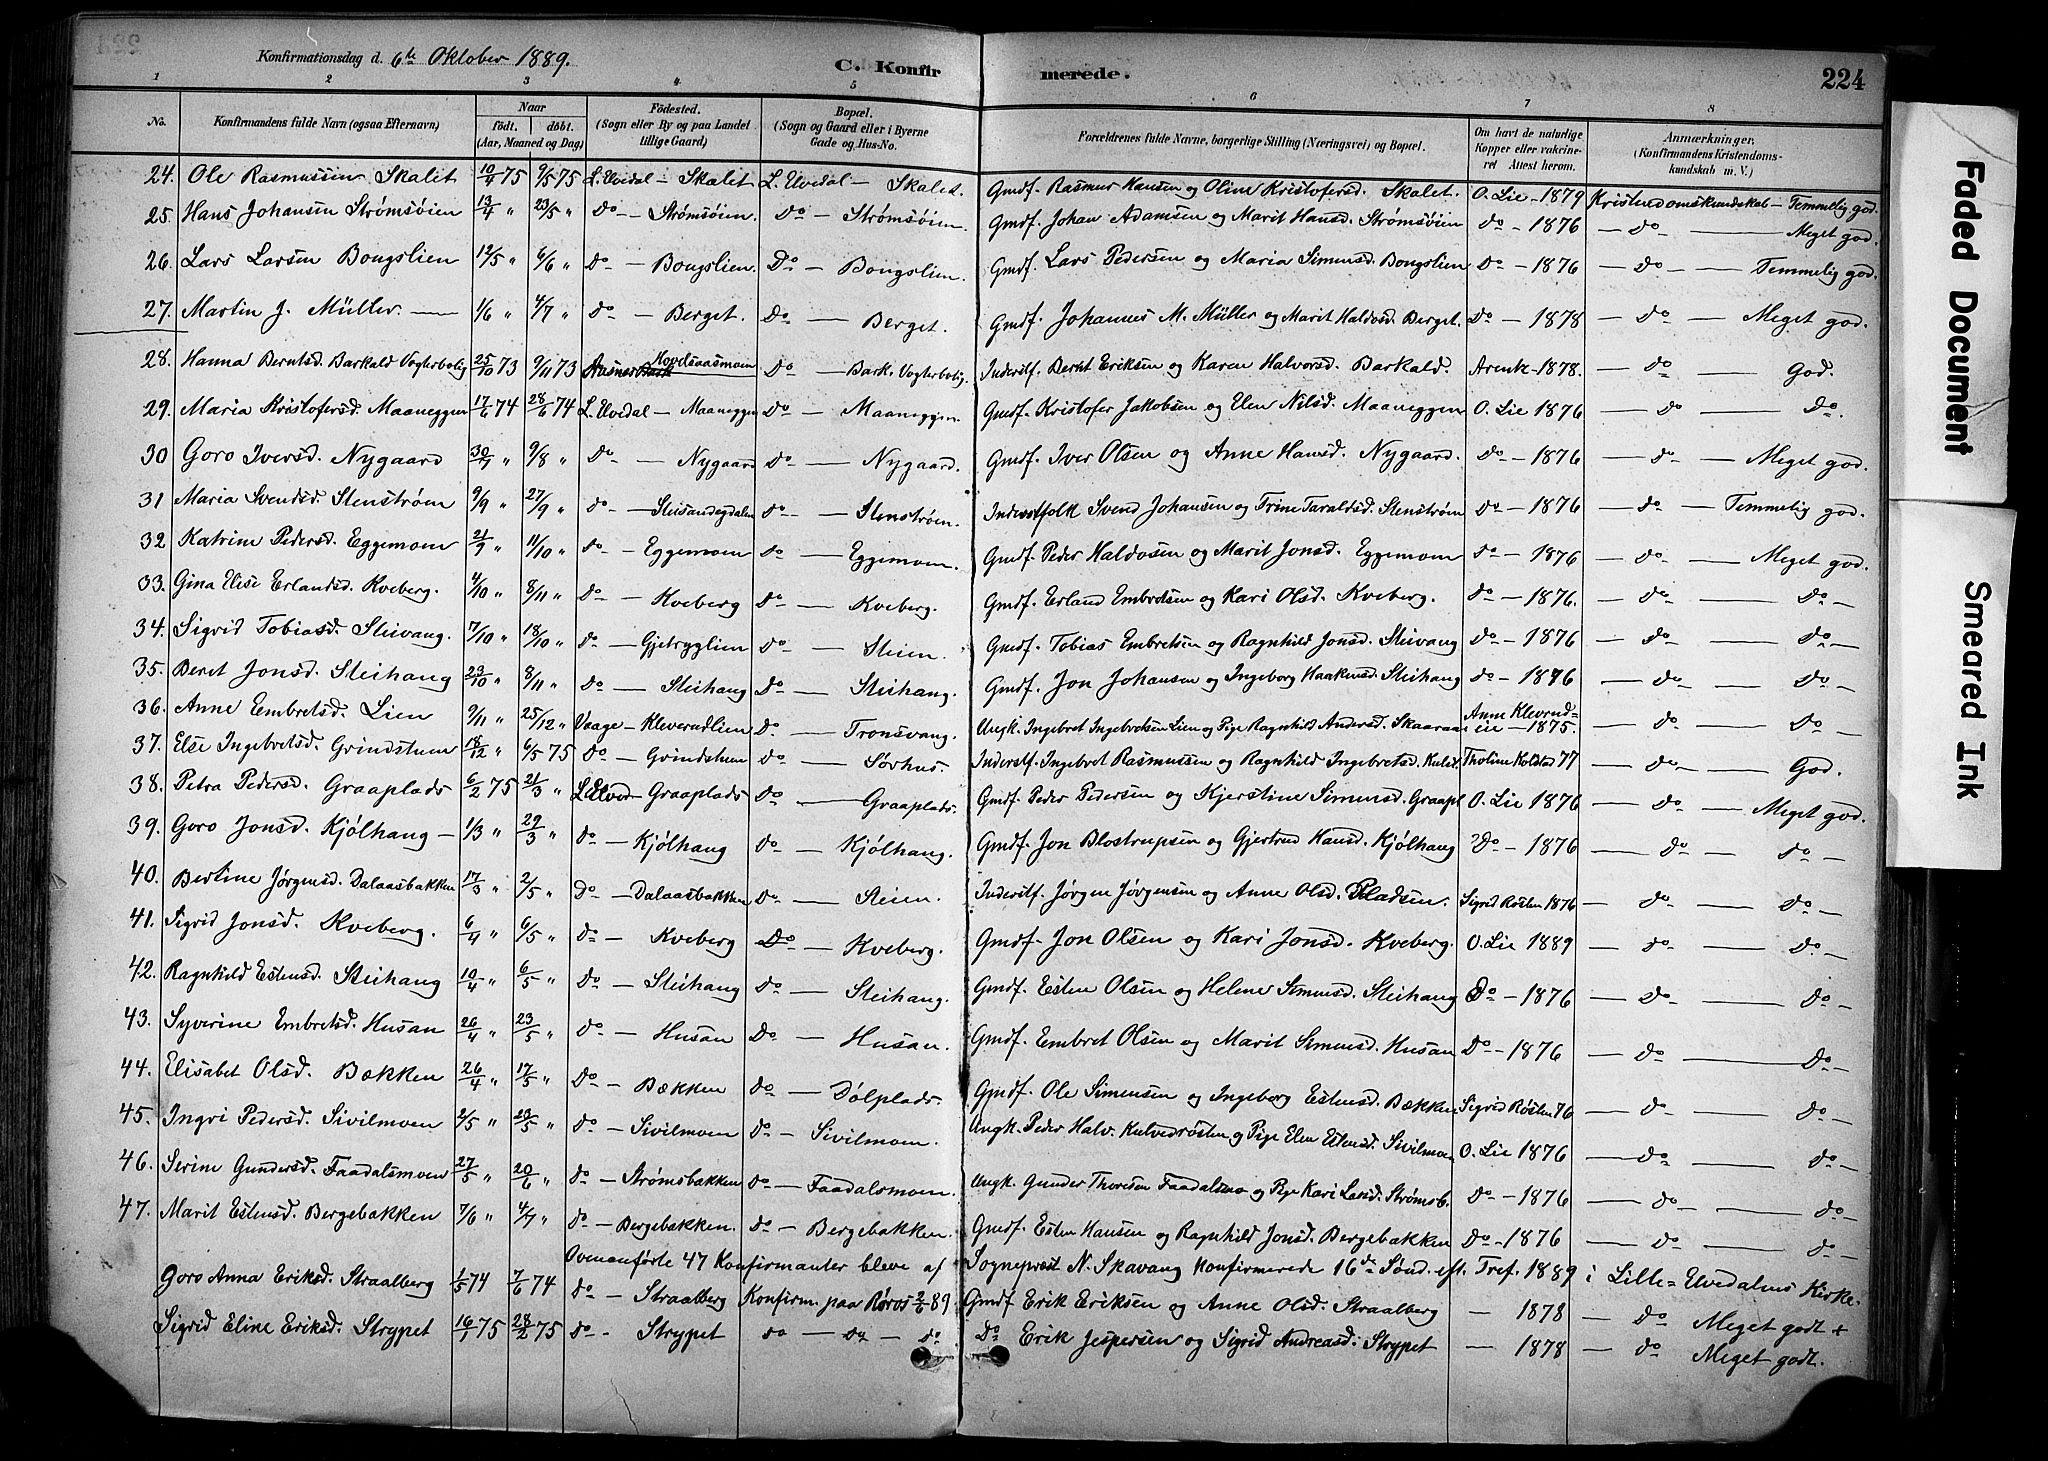 Konfirmationsdag d. 6te Oktober 1889.
C. Konfirmerede.
224
1 2 3 4 5 6 7 8
No. Konfirmandens fulde Navn (ogsaa Efternavn) Naar født. døbt. (Aar, Maaned og Dag) Fødested. (Sogn eller By og paa Landet tillige Gaard) Bopæl. (Sogn og Gaard eller i Byerne Gade og Hus-No. Forældrenes fulde Navne, borgerlige Stilling (Næringsvei) og Bopæl. Om havt de naturlige Kopper eller vakcineret Attest herom. Anmærkninger. (Konfirmandens Kristendomskundskab m. V.)
24. Ole Rasmussen Skalet 10/4 75 9/5 75 L. Elvedal – Skalet L. Elvedal – Skalet. Gmdf. Rasmus Hansen og Oline Kristofersd. Skalet. O. Lie – 1879 Kristendomskundskab – Temmelig god.
25. Hans Johansen Strømsøien 13/4 " 23/5 " do – Strømsøien. do – Strømsøien. Gmdf. Johan Adamsen og Marit Hansd. Strømsøien do – 1876 – do – Meget god.
26. Lars Larsen Bongslien 12/5 " 6/6 " do – Bongslien. Do – Bongslien. Gmdf. Lars Pedersen og Maria Simensd. Bongslien Do – 1876 – do – Temmelig god.
27. Martin J. Müller. 1/6 " 4/7 " do – Berget. Do – Berget. Gmdf. Johannes M. Müller og Marit Haldosd. Berget. Do – 1878 – do – Meget god.
28. Hanna Berntsd. Barkald Vogterbolig 25/10 73 9/11 73 Hovdsaasmoen Do – Bark. Vogterbolig. Inderstf. Bernt Eriksen og Karen Halvorsd. Barkald. Arentz – 1878. – do – God.
29. Maria Kristofersd. Maaneggen 17/6 74 28/6 74 L. Elvedal – Maaneggen Do – Maaneggen. Gmdf. Kristofer Jakobsen og Elen Nilsd. Maaneggen O. Lie 1876 – do – Do.
30 Goro Iversd. Nygaard 30/7 " 9/8 " do – Nygaard Do – Nygaard. Gmdf. Iver Olsen og Anne Hansd. Nygaard. Do – 1876 – do – Meget god.
31 Maria Svendsd. Stenstrøm 9/9 " 27/9 " do – do – Stenstrøen. Inderstfolk Svend Johansen og Trine Taraldsd. Stenstrøm Do – 1876 – do – Temmelig god.
32 Katrine Pedersd. Eggemoen 21/9 " 11/10 " do – Eggemoen do – Eggemoen. Gmdf. Peder Haldosen og Marit Jonsd. Eggemoen do – 1876 – do – Meget god.
33. Gina Elise Erlandsd. Kveberg. 4/10 " 8/11 " do – Kveberg do – Kveberg. Gmdf. Erland Embretsen og Kari Olsd. Kveberg. do – 1876. – do – do –
34. Sigrid Tobiasd. Steivang. 7/10 " 18/10 " do – Gjetryglien do – Steien. Gmdf. Tobias Embretsen og Ragnhild Jonsd. Steivang do – 1876 – do – do –
35. Beret Jonsd. Steihang 23/10 " 8/11 " do – Steihang Do – Steihang. Gmdf. Jon Johansen og Ingeborg Haakensd. Steihang do – 1876 – do – do –
36. Anne Eembretsd. Lien 9/11 " 25/12 " Vaage – Kleverudlien Do – Tronsvang. Ungk. Ingebret Ingebretsen Lien og Pige Ragnhild Andersd. Anne Klevrudlie – 1875. – do – Do –
37. Else Ingebretsd. Grindstuen 18/12 " 6/5 75 do – Grindstuen do – Søvhus. Inderstf. Ingebret Rasmussen og Ragnhild Ingebretsd. Tholine Kolstad 77 – do – God.
38. Petra Pedersd. Graaplads 6/2 75 21/3 " L. Elved – Graaplads do – Graaplads. Gmdf. Peder Pedersen og Kjerstine Simensd. Graapl. O. Lie 1876 – do – Meget god.
39. Goro Jonsd. Kjølhang – 1/3 " 29/3 " do – Kjølhang do – Kjølhang. Gmdf. Jon Blostrupsen og Gjertrud Hansd. Kjølhang Do – 1876 – do – do –
40. Bertine Jørgensd. Dalaasbakken 17/3 " 2/5 " Do – Dalaasbakken Do – Steien. Inderstf. Jørgen Jørgensen og Anne Olsd. Pladsen. Sigrid Røsten 1876 – do – do –
41. Sigrid Jonsd. Kveberg. 6/4 " 6/5 " do – Kveberg Do – Kveberg. Gmdf. Jon Olsen og Kari Jonsd. Kveberg. O. Lie 1889 – do – do –
42. Ragnhild Estensd. Steihang 10/4 " 6/5 " do – Steihang do – Steihang. Gmdf. Esten Olsen og Helene Simensd. Steihang Do – 1876 – do – do –
43. Syverine Embretsd. Husan 26/4 " 23/5 " do – Husan Do – Husan. Gmdf. Embret Olsen og Marit Simensd. Husan Do – 1876 – do – Do –
44. Elisabet Olsd. Bækken 26/4 " 17/5 " Do – Bækken do – Dølplads. Gmdf. Ole Simensen og Ingeborg Estensd. Bækken Sigrid Røsten 76 – do – do –
45. Ingri Pedersd. Sivilmoen 2/5 " 23/5 " do – Sivilmoen do – Sivilmoen. Ungk. Peder Halv. Kulvedrøsten og Pige Elen Estensd. Sivilmoen O. Lie 1876 – do – do –
46. Serine Gundersd. Faadalsmoen 27/5 " 20/6 " do – Strømsbakken do – Faadalsmoen. Ungk. Gunder Thoresen Faadalsmo og Pige Kari Larsd. Strømsb. Do – 1876 – do – do –
47. Marit Estensd. Bergebakken 7/6 " 4/7 " do – Bergebakken. do – Bergebakken. Gmdf. Esten Hansen og Ragnhild Jonsd. Bergebakken Do – 1876 – do – do –
Ovenanførte 47 Konfirmanter bleve af Sogneprest N. Skavang konfirmerede 16de Sønd. eft. Tref. 1889 i Lille-Elvedalens Kirke.
Goro Anna Eriksd. Straalberg 1/5 74 7/6 74 do – Straalberg Konfirm. paa Røros 2/6 89. Gmdf Erik Eriksen og Anne Olsd. Straalberg – 1878 – do Meget godt +
Sigrid Eline Eriksd. Strypet 16/1 75 28/2 75 do – Strypet do – do – do Do Erik Jespersen og Sigrid Andreasd. Strypet – 1878 – do Meget godt.
Faded Document
Smeared Ink